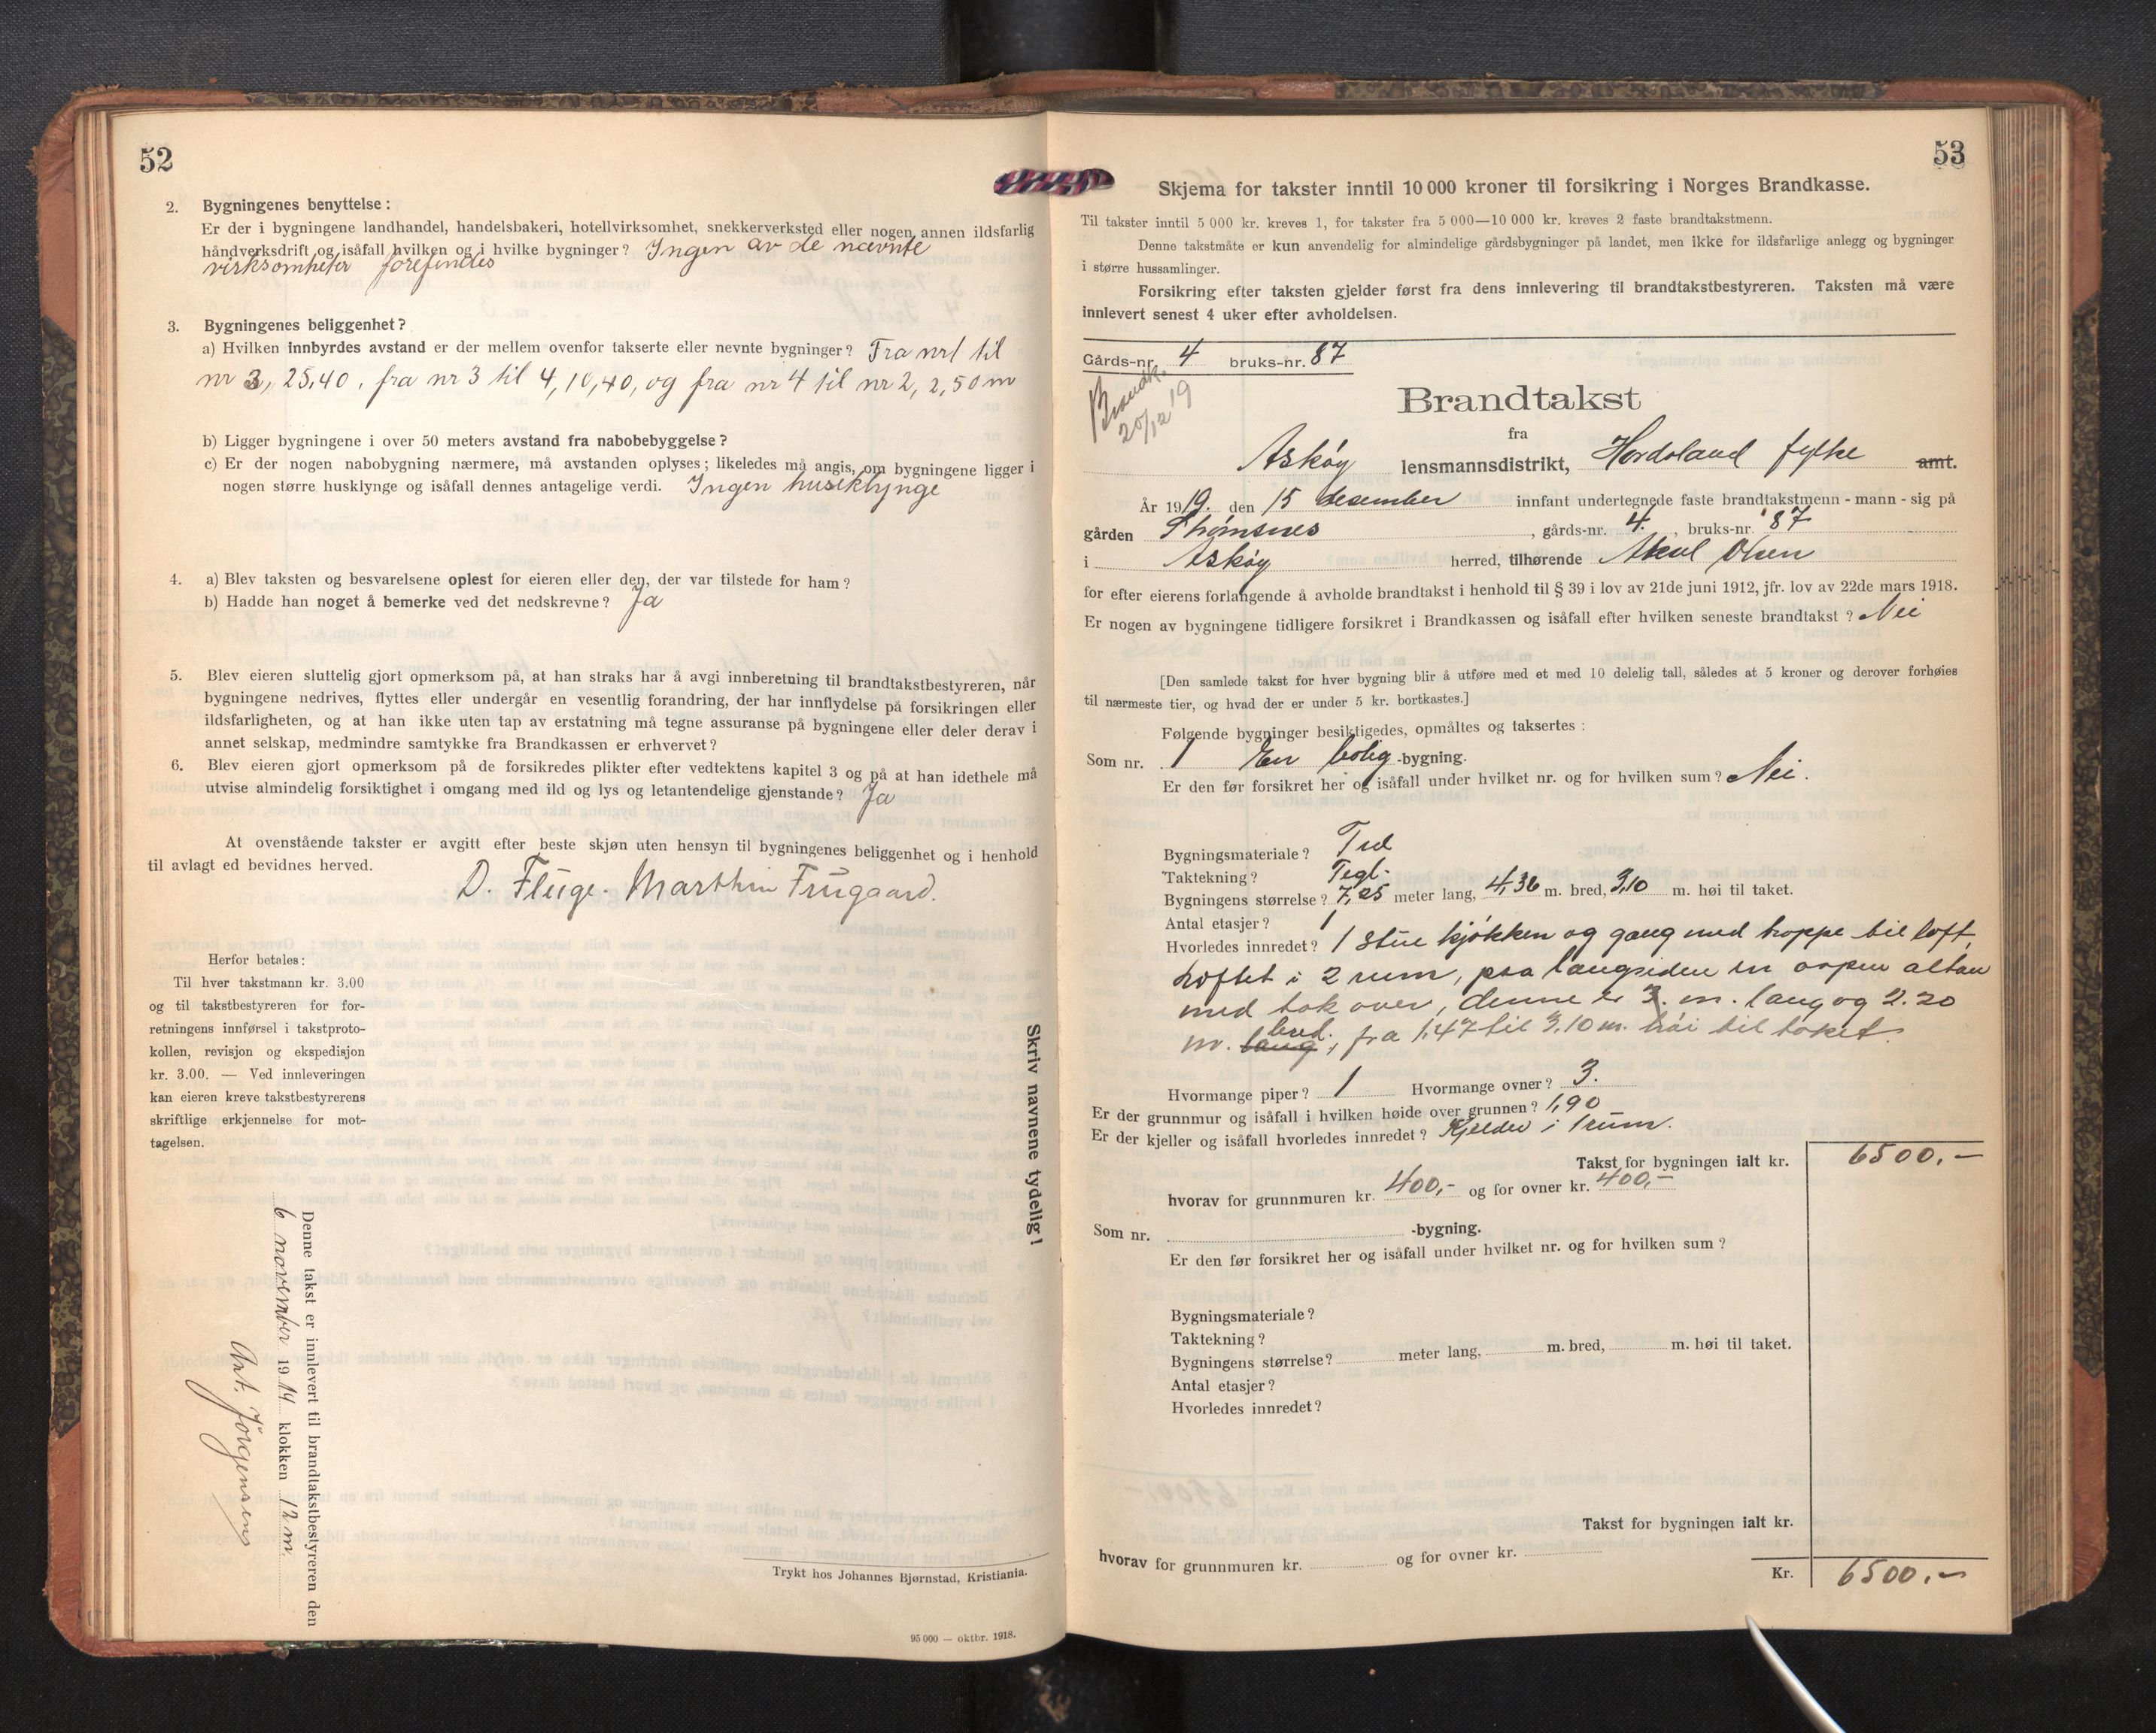 52
2. Bygningenes benyttelse :
Er der i bygningene landhandel, handelsbakeri, hotellvirksomhet, snekkerverksted eller nogen annen ildsfarlig
håndverksdrift og isåfall hvilken og i hvilke bygninger ? Ingen av de nævnte
virksomheter forefindes
3. Bygningenes beliggenhet ?
a) Hvilken innbyrdes avstand er der mellem ovenfor takserte eller nevnte bygninger ? Fra nr 1 til
nr 3, 25,40, fra nr 3 til 4, 10,40, og fra nr 4 til nr 2, 2,50 m
b) Ligger bygningene i over 50 meters avstand fra nabobebyggelse ?
c) Er der nogen nabobygning nærmere, må avstanden oplyses ; likeledes må angis, om bygningene ligger i
nogen større husklynge og isåfall dennes antagelige verdi. Ingen huseklynge
4. a) Blev taksten og besvarelsene oplest for eieren eller den, der var tilstede for ham ?
b) Hadde han noget å bemerke ved det nedskrevne ? Ja
5. Blev eieren sluttelig gjort opmerksom på, at han straks har å avgi innberetning til brandtakstbestyreren, når
bygningene nedrives, flyttes eller undergår en vesentlig forandring, der har innflydelse på forsikringen eller
ildsfarligheten, og at han ikke uten tap av erstatning må tegne assuranse på bygningene eller deler derav i
annet selskap, medmindre samtykke fra Brandkassen er erhvervet ?
6. Blev eieren gjort opmerksom på de forsikredes plikter efter vedtektens kapitel 3 og på at han idethele må
utvise almindelig forsiktighet i omgang med ild og lys og letantendelige gjenstande ? Ja
At ovenstående takster er avgitt efter beste skjøn uten hensyn til bygningenes beliggenhet og i henhold
til avlagt ed bevidnes herved.
D. Fluge. Marthin Frugaard.
Herfor betales :
Til hver takstmann kr. 3.00
og til takstbestyreren for for-
retningens innførsel i takstproto-
kollen, revisjon og ekspedisjon
kr. 3.00. — Ved innleveringen
kan eieren kreve takstbestyrerens
skriftlige erkjennelse for mot-
tagelsen.
Skriv navnene tydelig !
Denne takst er innlevert til brandtakstbestyreren den
6 november 1914 klokken 12 m.
Art. Jørgensen
Trykt hos Johannes Bjørnstad, Kristiania.
95 000 — oktbr. 1918.
53
Skjema for takster inntil 10 000 kroner til forsikring i Norges Brandkasse.
Til takster inntil 5 000 kr. kreves 1, for takster fra 5 000—10 000 kr. kreves 2 faste brandtakstmenn.
Denne takstmåte er kun anvendelig for almindelige gårdsbygninger på landet, men ikke for ildsfarlige anlegg og bygninger
i større hussamlinger.
Forsikring efter taksten gjelder først fra dens innlevering til brandtakstbestyreren. Taksten må være
innlevert senest 4 uker efter avholdelsen.
Gårds-nr. 4 bruks-nr. 87
Brandk.
20/12 19
Brandtakst
fra
Askøy lensmannsdistrikt, Hordaland fylke amt.
År 1919. den 15 desember innfant undertegnede faste brandtakstmenn - mann - sig på
gården Strømsnes, gårds-nr. 4, bruks-nr. 87
i Askøy herred, tilhørende Olsen
for efter eierens forlangende å avholde brandtakst i henhold til § 39 i lov av 21de juni 1912, jfr. lov av 22de mars 1918.
Er nogen av bygningene tidligere forsikret i Brandkassen og isåfall efter hvilken seneste brandtakst ? Nei
[Den samlede takst for hver bygning blir å utføre med et med 10 delelig tall, således at 5 kroner og derover forhøies
til nærmeste tier, og hvad der er under 5 kr. bortkastes.]
Følgende bygninger besiktigedes, opmåltes og taksertes :
Som nr. 1 En bolig -bygning.
Er den før forsikret her og isåfall under hvilket nr. og for hvilken sum ? Nei.
Bygningsmateriale ? Træ
Taktekning ? Tegl.
Bygningens størrelse ? 7,25 meter lang, 4,36 m. bred, 3,10 m. høi til taket.
Antal etasjer ? 1
Hvorledes innredet ? 1 stue kjøkken og gang med trappe til loft,
Loftet i 2 rum, paa langsiden en aapen altan
med tak over, denne er 3. m. lang og 2.20
m. lang bred., fra 1,47 til 3,10 m. høi til taket.
Hvormange piper ? 1 Hvormange ovner ? 3.
Er der grunnmur og isåfall i hvilken høide over grunnen ? 1,90
Er der kjeller og isåfall hvorledes innredet ? Kjelder i 1 rum.
Takst for bygningen ialt kr. 6500,-
hvorav for grunnmuren kr. 400,- og for ovner kr. 400,-
Som nr. -bygning.
Er den før forsikret her og isåfall under hvilket nr. og for hvilken sum ?
Bygningsmateriale ?
Taktekning ?
Bygningens størrelse ? meter lang, m. bred, m. høi til taket.
Antal etasjer ?
Hvorledes innredet ?
Takst for bygningen ialt kr.
hvorav for grunnmuren kr. og for ovner kr.
Kr. 6500,-